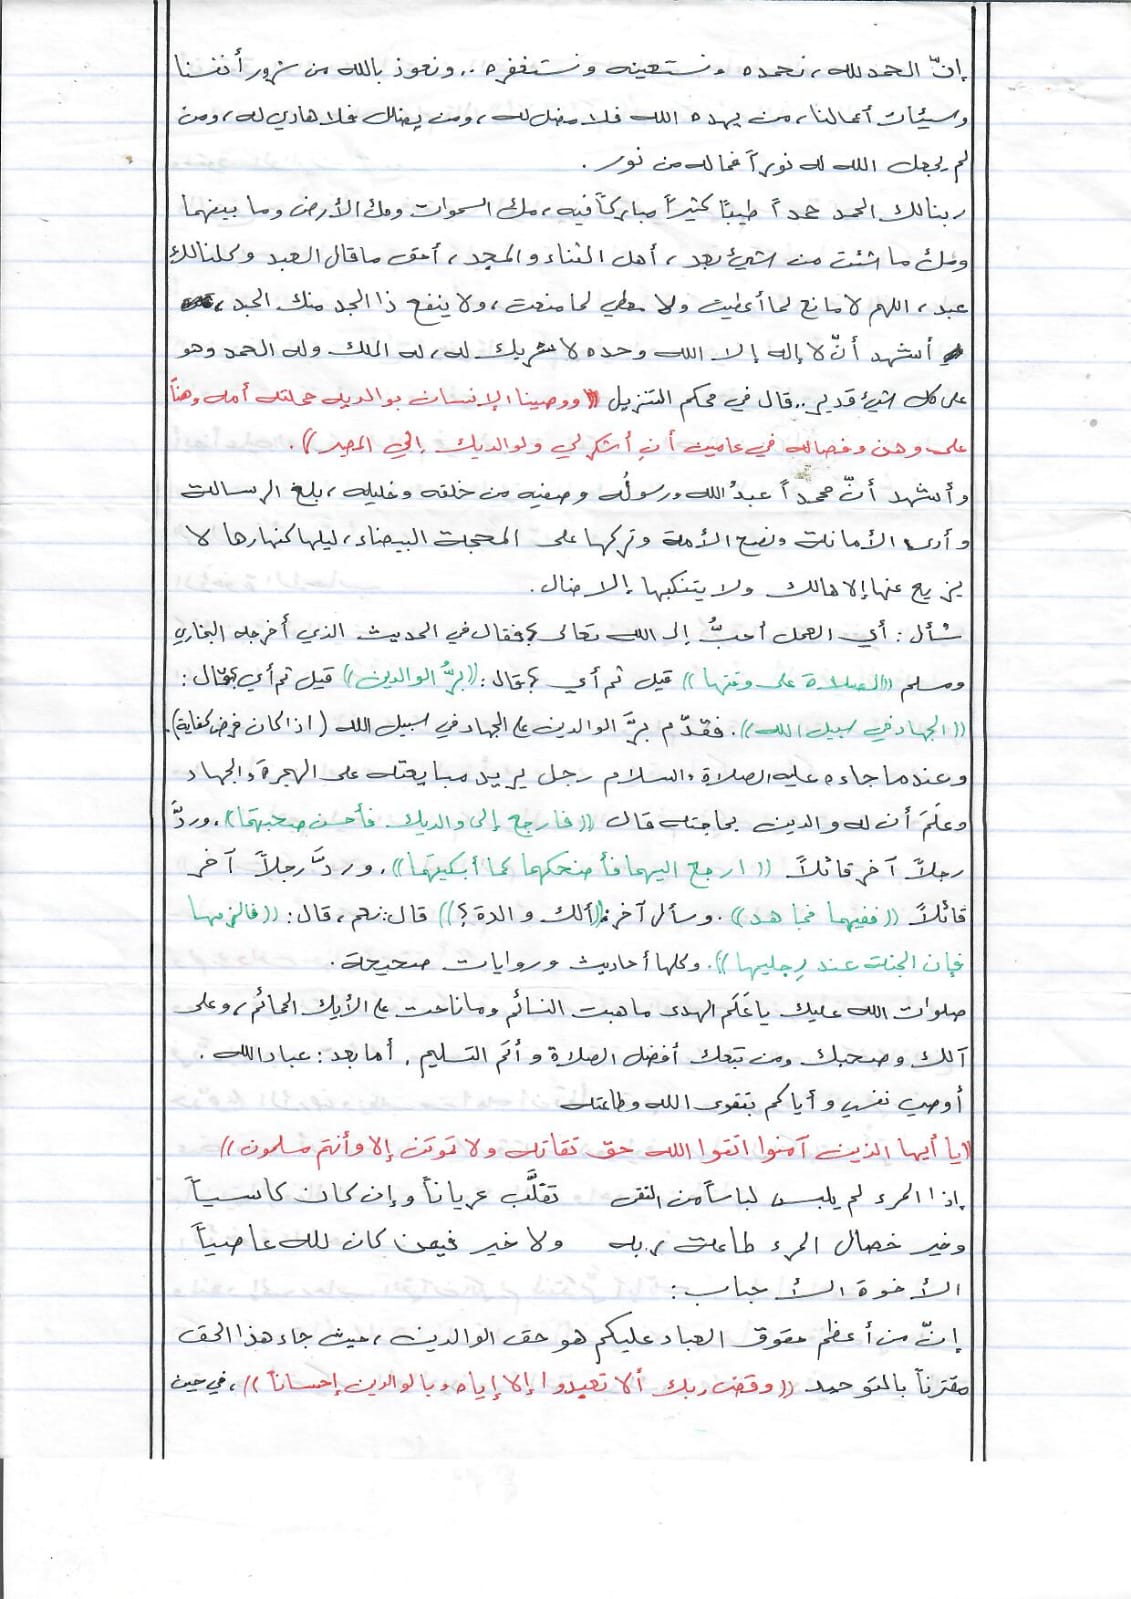 إنّ الحمد لله، نحمده ونستعينه ونستغفره.. ونعوذ بالله من شرور أنفسنا
وسيئات أعمالنا، من يهده الله فلا مضل له، ومن يضلل فلا هادي له، ومن
لم يجعل الله له نوراً فماله من نور.
ربنا لك الحمد حمداً طيبًا كثيراً مباركاً فيه، ملء السموات وملء الأرض وما بينهما
وملء ما شئت من شيء بعد، أهل الثناء والمجد، أحق ما قال العبد وكلنا لك
عبد، اللهم لا مانع لما أعطيت ولا معطي لما منعت، ولا ينفع ذا الجد منك الجد،
أشهد أنّ لا إله إلا الله وحده لا شريك له، له الملك وله الحمد وهو
على كل شيء قدير.. قال في محكم التنزيل ((ووصينا الإنسان بوالديه حملته أمه وهناً
على وهن وفصاله في عامين أن أشكر لي ولوالديك إليّ المصير)).
وأشهد أنّ محمداً عبدُ الله ورسولُه وصفيه من خلقه وخليله، بلغ الرسالة
وأدى الأمانة ونصح الأمة وتركها على المحجة البيضاء، ليلها كنهارها لا
يزيع عنها إلا هالك ولا يتنكبها إلا ضال.
سُأل: أي العمل أحبُّ إلى الله تعالى؟ فقال في الحديث الذي أخرجه البخاري
ومسلم ((الصلاة على وقتها)) قيل ثم أي؟ قال: ((برُّ الوالدين)) قيل ثم أي؟ قال:
((الجهاد في سبيل الله)). فقدّم برَّ الوالدين على الجهاد في سبيل الله (اذا كان فرض كفاية).
وعندما جاءه عليه الصلاة والسلام رجل يريد مبايعته على الهجرة والجهاد
وعلمَ أن له والدين بحاجته قال ((فارجع إلى والديك فأحسن صحبتهما)). وردَّ
رجلاً آخر قائلاً ((ارجع اليهما فأضحكهما كما أبكيتهما)). وردَّ رجلاً آخر
قائلاً ((ففيهما فجاهد)). وسأل آخر: ((ألك والدة؟)) قال: نعم، قال: ((فالزمها
فإن الجنة عند رِجليها)). وكلها أحاديث وروايات صحيحة.
صلوات الله عليك يا عَلَم الهدى ما هبت النسائم وما ناحت على الأيك الحمائم، وعلى
آلك وصحبك ومن تبعك أفضل الصلاة وأتم التسليم. أما بعد: عباد الله.
أوصي نفسي وأياكم بتقوى الله وطاعته
((يا أيها الذين آمنوا اتقوا الله حق تقاته ولا تموتن إلا وأنتم مسلمون))
إذا المرء لم يلبس لباساً من التقى تقلَّب عرياناً وإن كان كاسياً
وخير خصال المرء طاعة ربه ولا خير فيمن كان لله عاصياً
الأخوة الأحباب:
إنّ من أعظم حقوق العباد عليكم هو حق الوالدين، حيث جاء هذا الحق
مقترناً بالتوحيد ((وقضى ربك ألا تعبدوا إلا إياه وبالوالدين إحساناً))، في حين